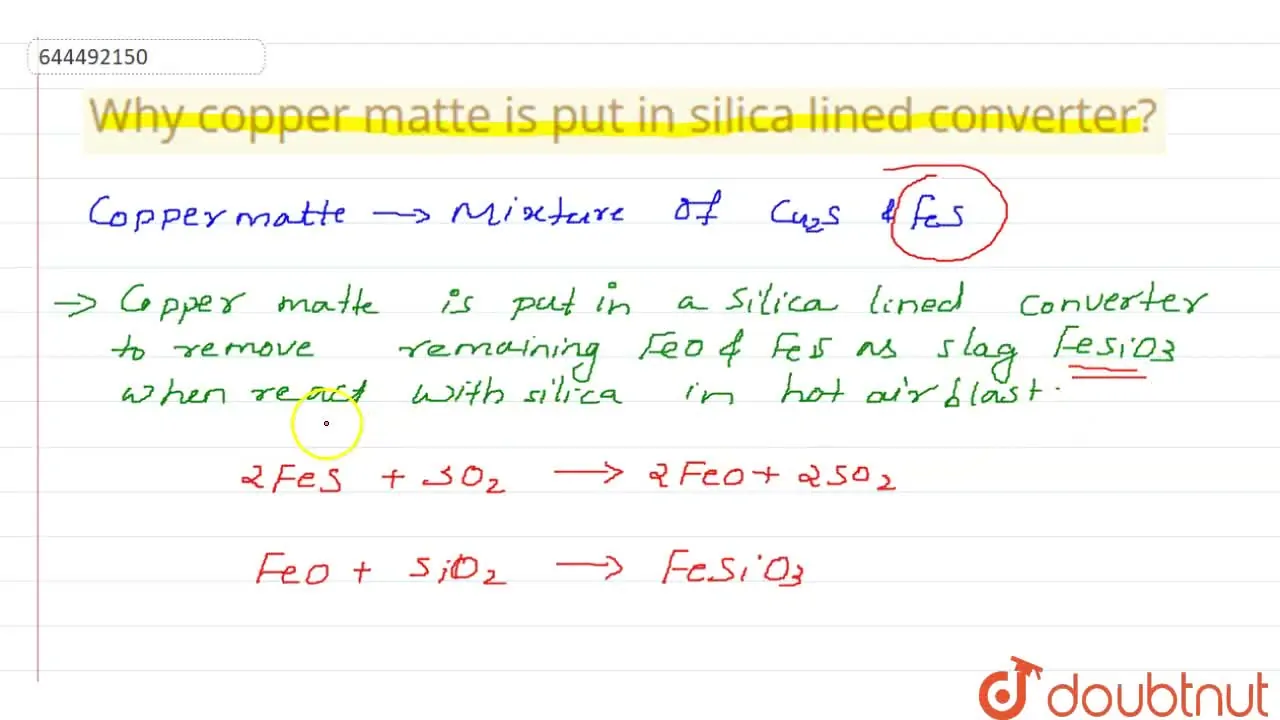 644492150
Why copper matte is put in silica lined converter?
Copper matte → Mixture of Cu₂S & FeS
→ Copper matte is put in a silica lined converter
to remove remaining FeO & FeS as slag FeSiO₃
when react with silica in hot air blast.
2FeS + 3O₂ → 2FeO + 2SO₂
FeO + SiO₂ → FeSiO₃
doubtnut